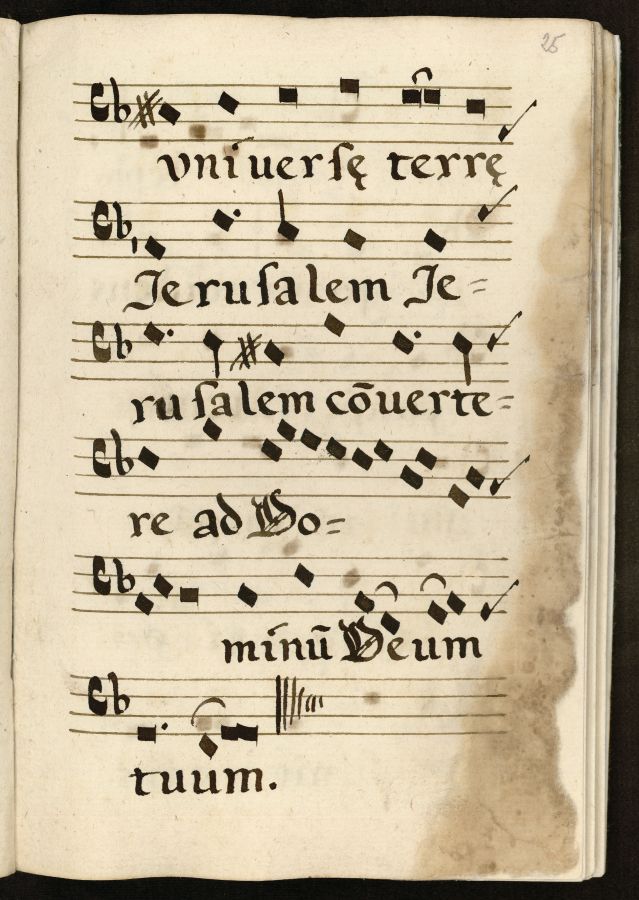 25
vniuersę terrę
Jerusalem Je=
rusalem cōuerte=
re ad Do=
minū Deum
tuum.